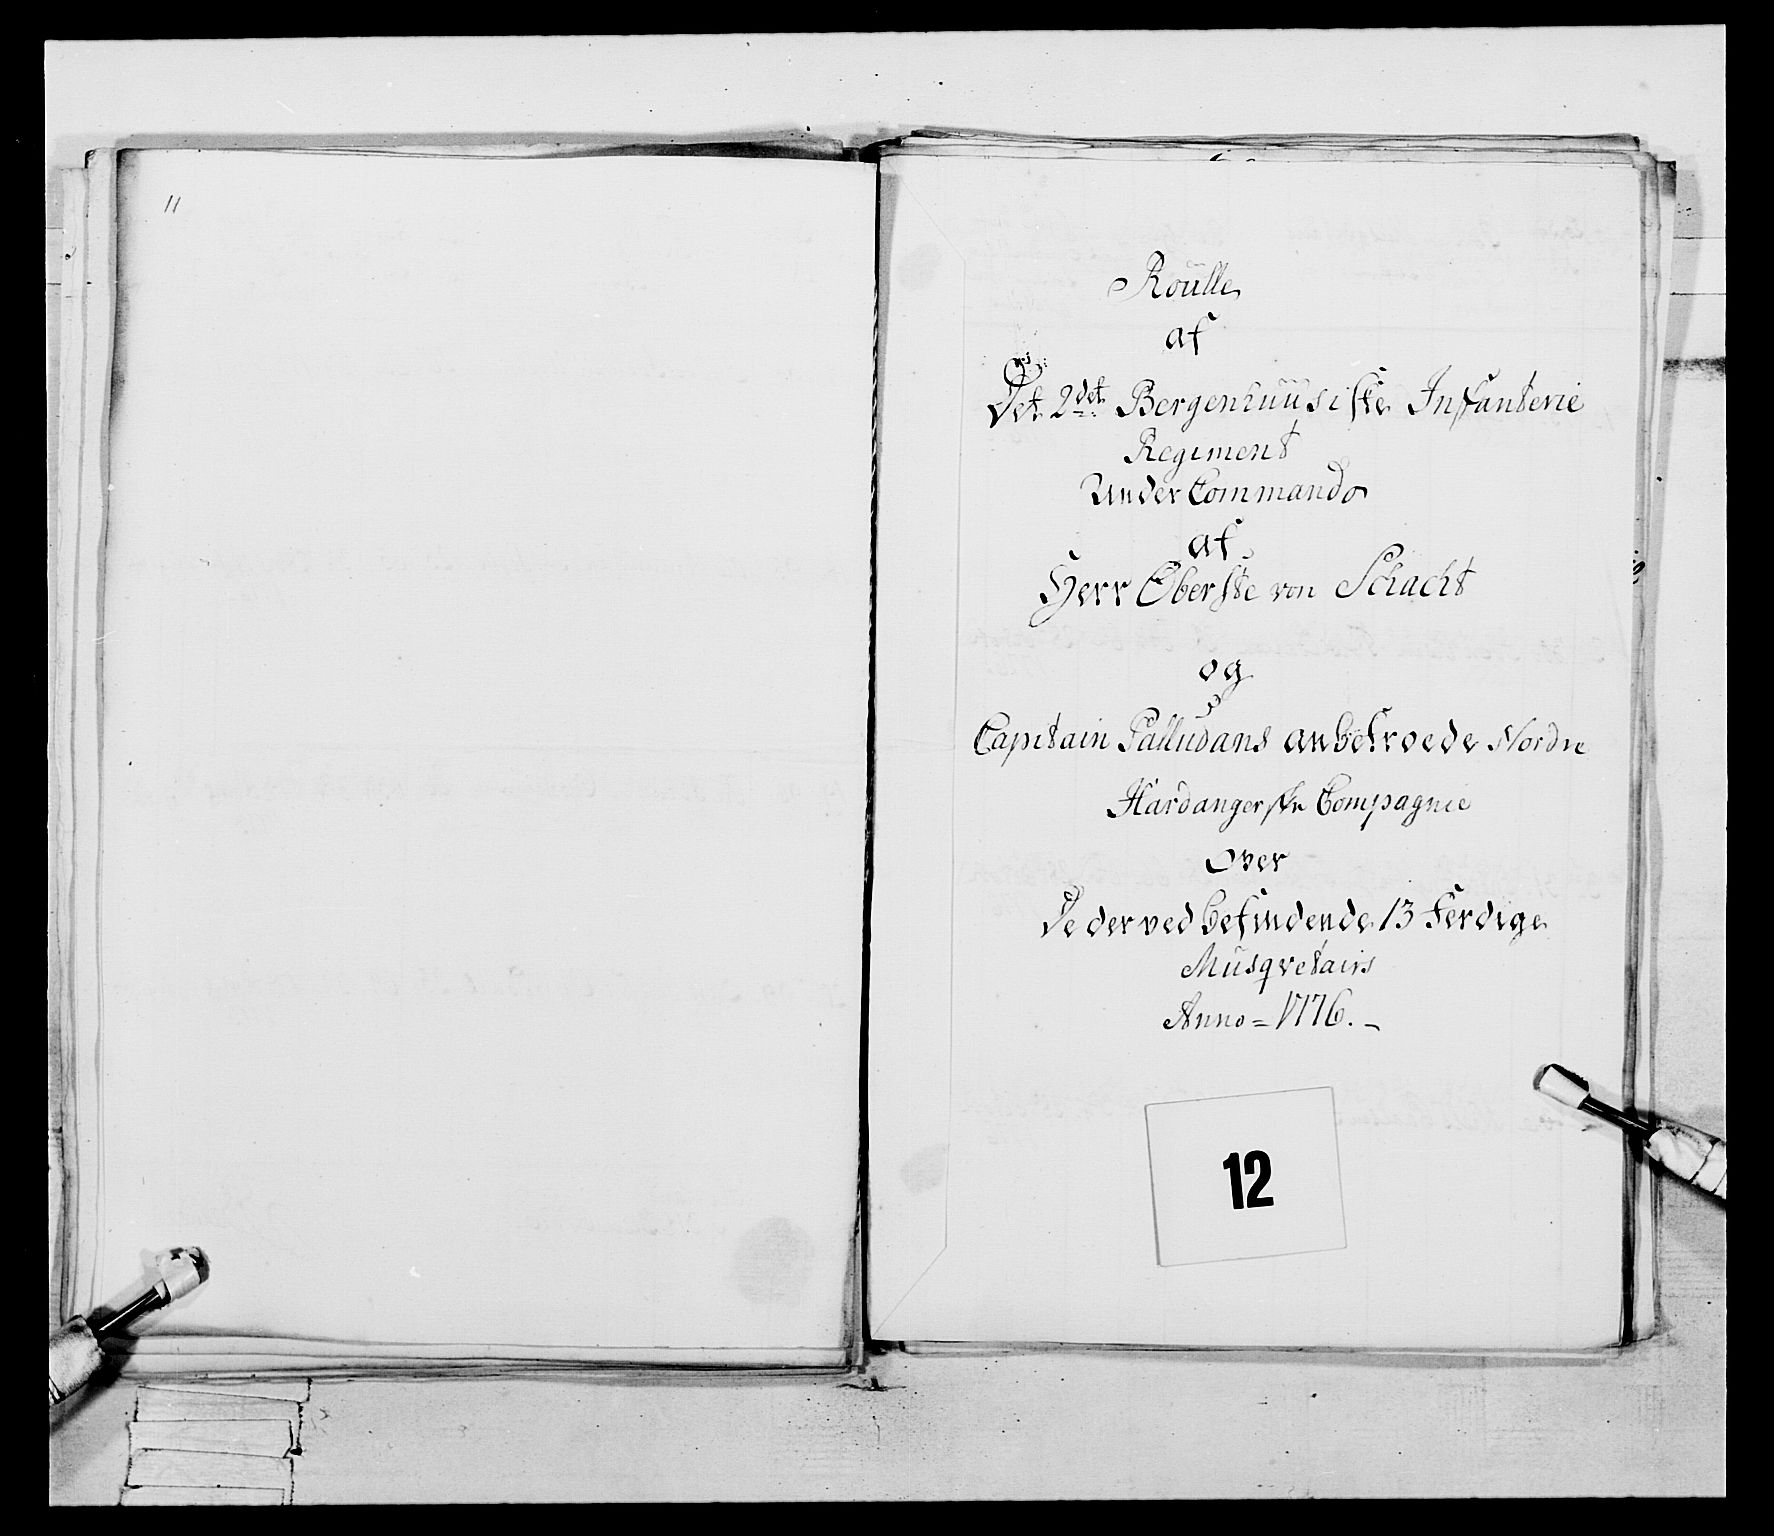 11
Roülle
af
Det 2det Bergenhuüsiske Infanterie
Regiment
Under Commando
af
Herr Oberste von Schacht
og
Capitain Palludans anbetroede Nordre
Hardangerske Compagnie
Over
De derved befindende 13 Ferdige
Musqvetairs
Anno = 1776. -
12